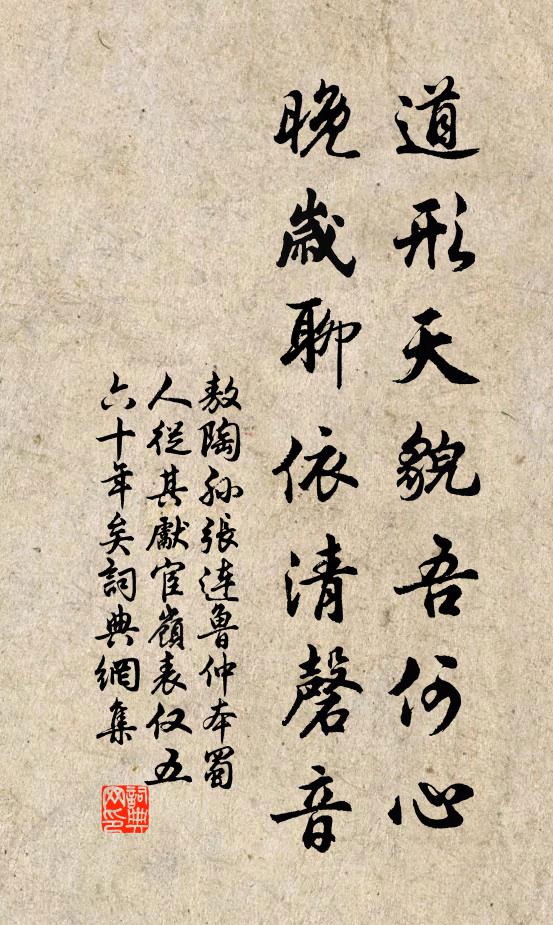 道形天貌吾何心
晚歲聊依清磬音
敖陶孫張達魯仲本蜀
人從其獻宦嶺表仅五
六十年矣詞典網集
詞典网印